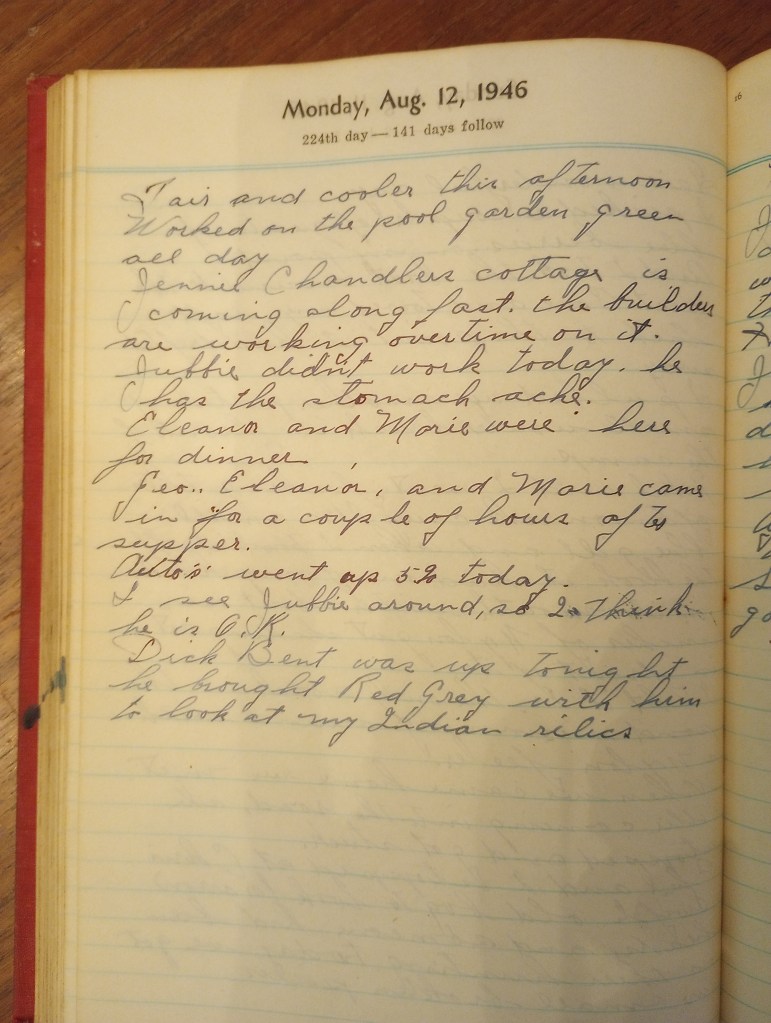 Monday, Aug. 12, 1946
224th day — 141 days follow
Fair and cooler this afternoon
Worked on the pool garden green
all day
Jennie Chandlers cottage is
coming along fast. the builders
are working overtime on it.
Jubbie didn't work today. he
has the stomach ache.
Eleanor and Marie were here
for dinner
Geo., Eleanor, and Marie came
in for a couple of hours after
supper.
Auto's went up 5% today.
I see Jubbie around, so I think
he is O.K.
Dick Bent was up tonight
he brought Red Grey with him
to look at my Indian relics